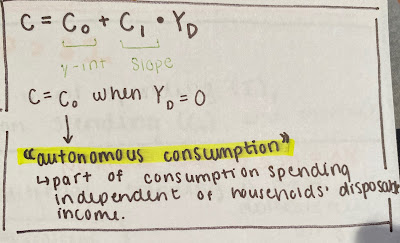 C = C₀ + C₁ • Y_D
y-int slope
C = C₀ when Y_D = 0
"autonomous consumption"
↳ part of consumption spending
independent of households' disposable
income.